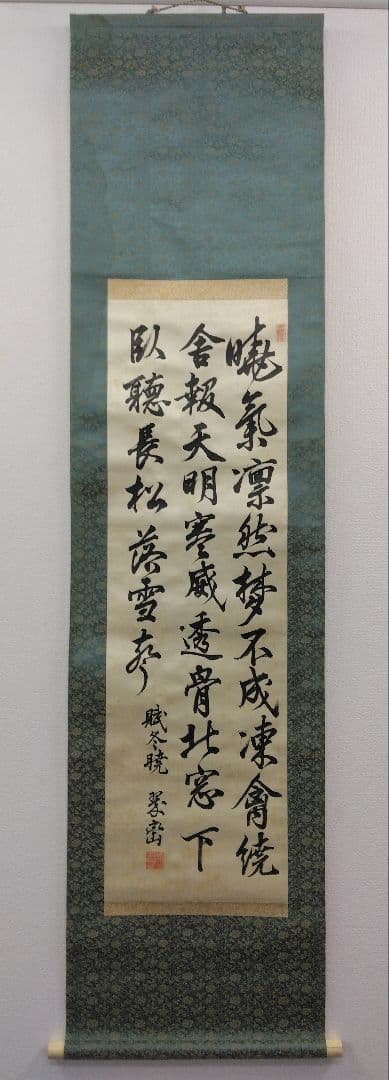 曉氣凛然梦不成凍禽繞
舍報天明寒威透骨北窓下
臥聽長松落雪聲
賦冬曉 翠巒